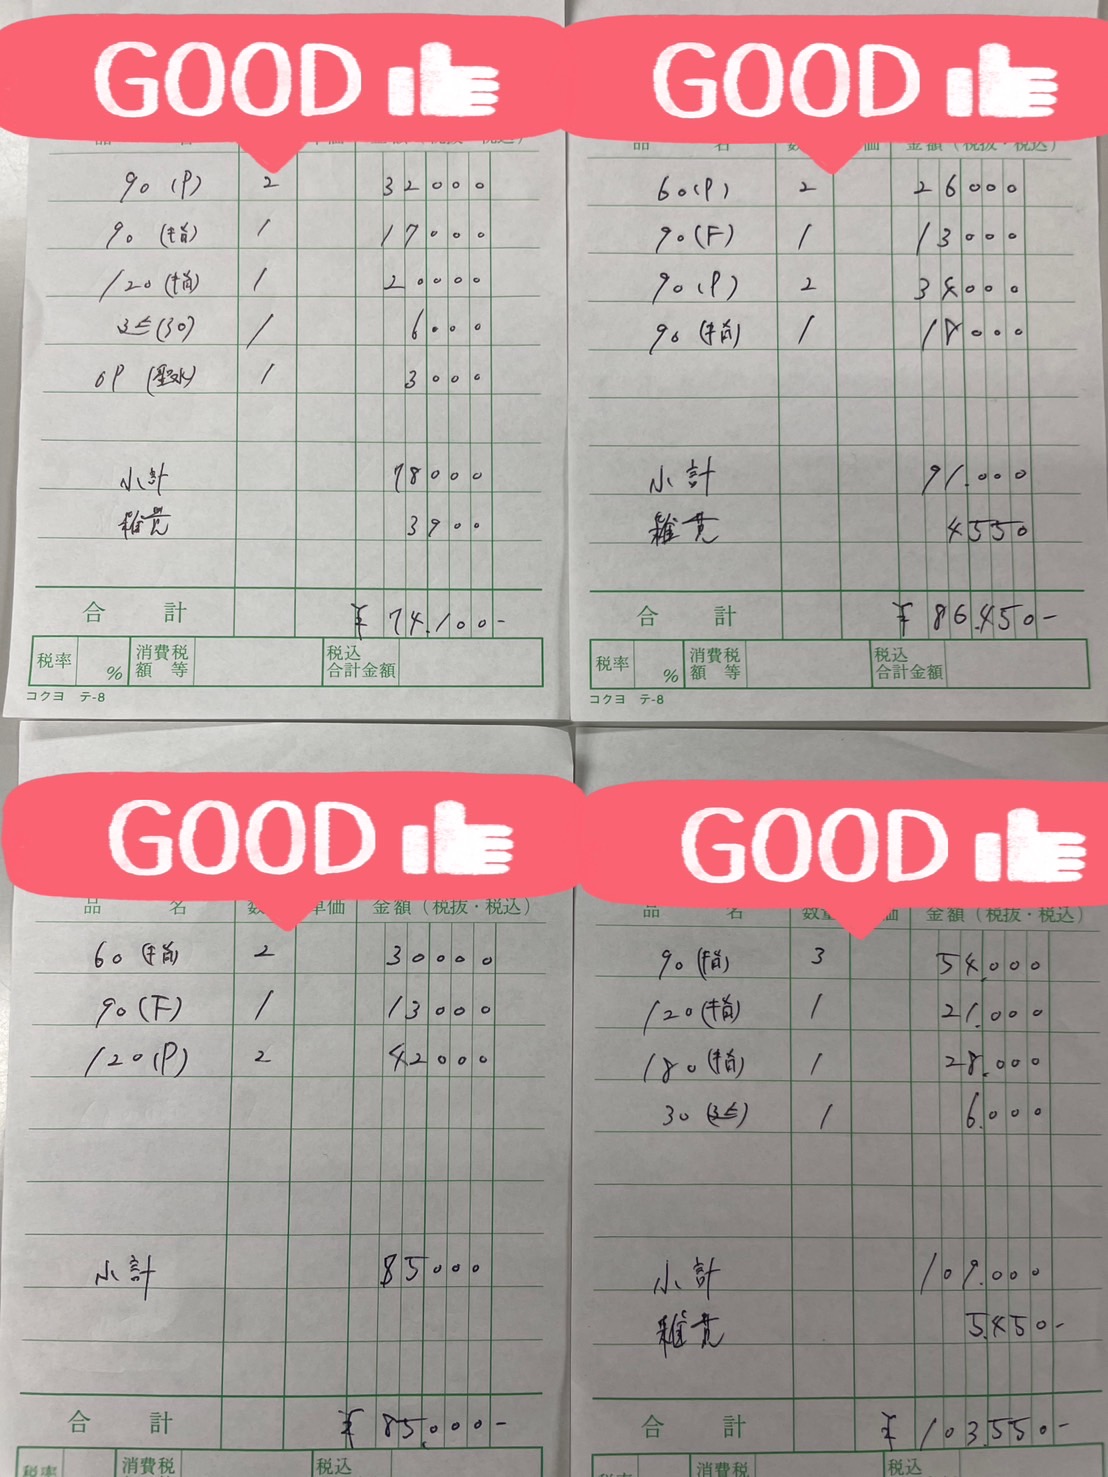 GOOD
90 (P) 2 32000
90 (指) 1 17000
120 (指) 1 20000
延(30) 1 6000
OP (聖水) 1 3000
小計 78000
雑費 3900
合計 ¥74.100-
税率 % 消費税額等 税込合計金額
コクヨ テ-8
GOOD
品名 金額(税抜・税込)
60(P) 2 26000
90(F) 1 13000
90(P) 2 34000
90(指) 1 18000
小計 91.000
雑費 4550
合計 ¥86.450-
税率 % 消費税額等 税込合計金額
コクヨ テ-8
GOOD
品名 数 単価 金額(税抜・税込)
60 (指) 2 30000
90(F) 1 13000
120(P) 2 42000
小計 85000
合計 ¥85.000-
税率 消費税 税込
GOOD
品名 数量 価 金額(税抜・税込)
90(指) 3 54.000
120(指) 1 21.000
180(指) 1 28.000
30(延) 1 6.000
小計 109.000
雑費 5.450-
合計 ¥103.550-
消費税 税込